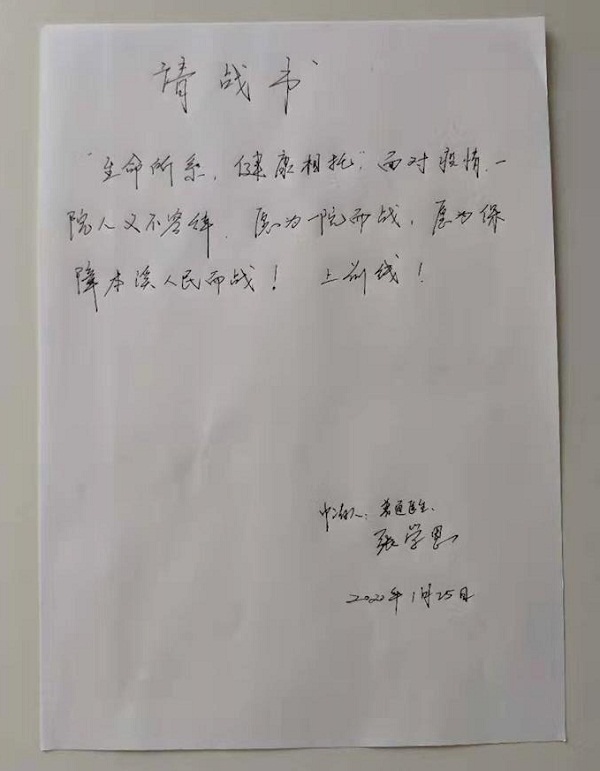 请战书
"生命所系，健康相托"面对疫情，一
院人义不容辞，愿为一院而战，愿为保
障本溪人民而战！ 上前线！
申请人：普通医生
张学思
2020年1月25日